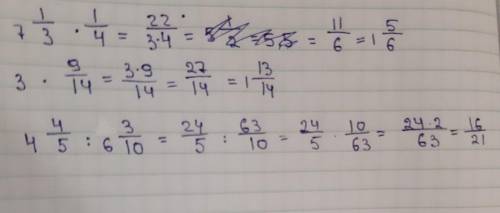 7 1/3 · 1/4 = 22/(3·4) = = 11/6 = 1 5/6
3 · 9/14 = (3·9)/14 = 27/14 = 1 13/14
4 4/5 : 6 3/10 = 24/5 : 63/10 = 24/5 · 10/63 = (24·2)/63 = 16/21